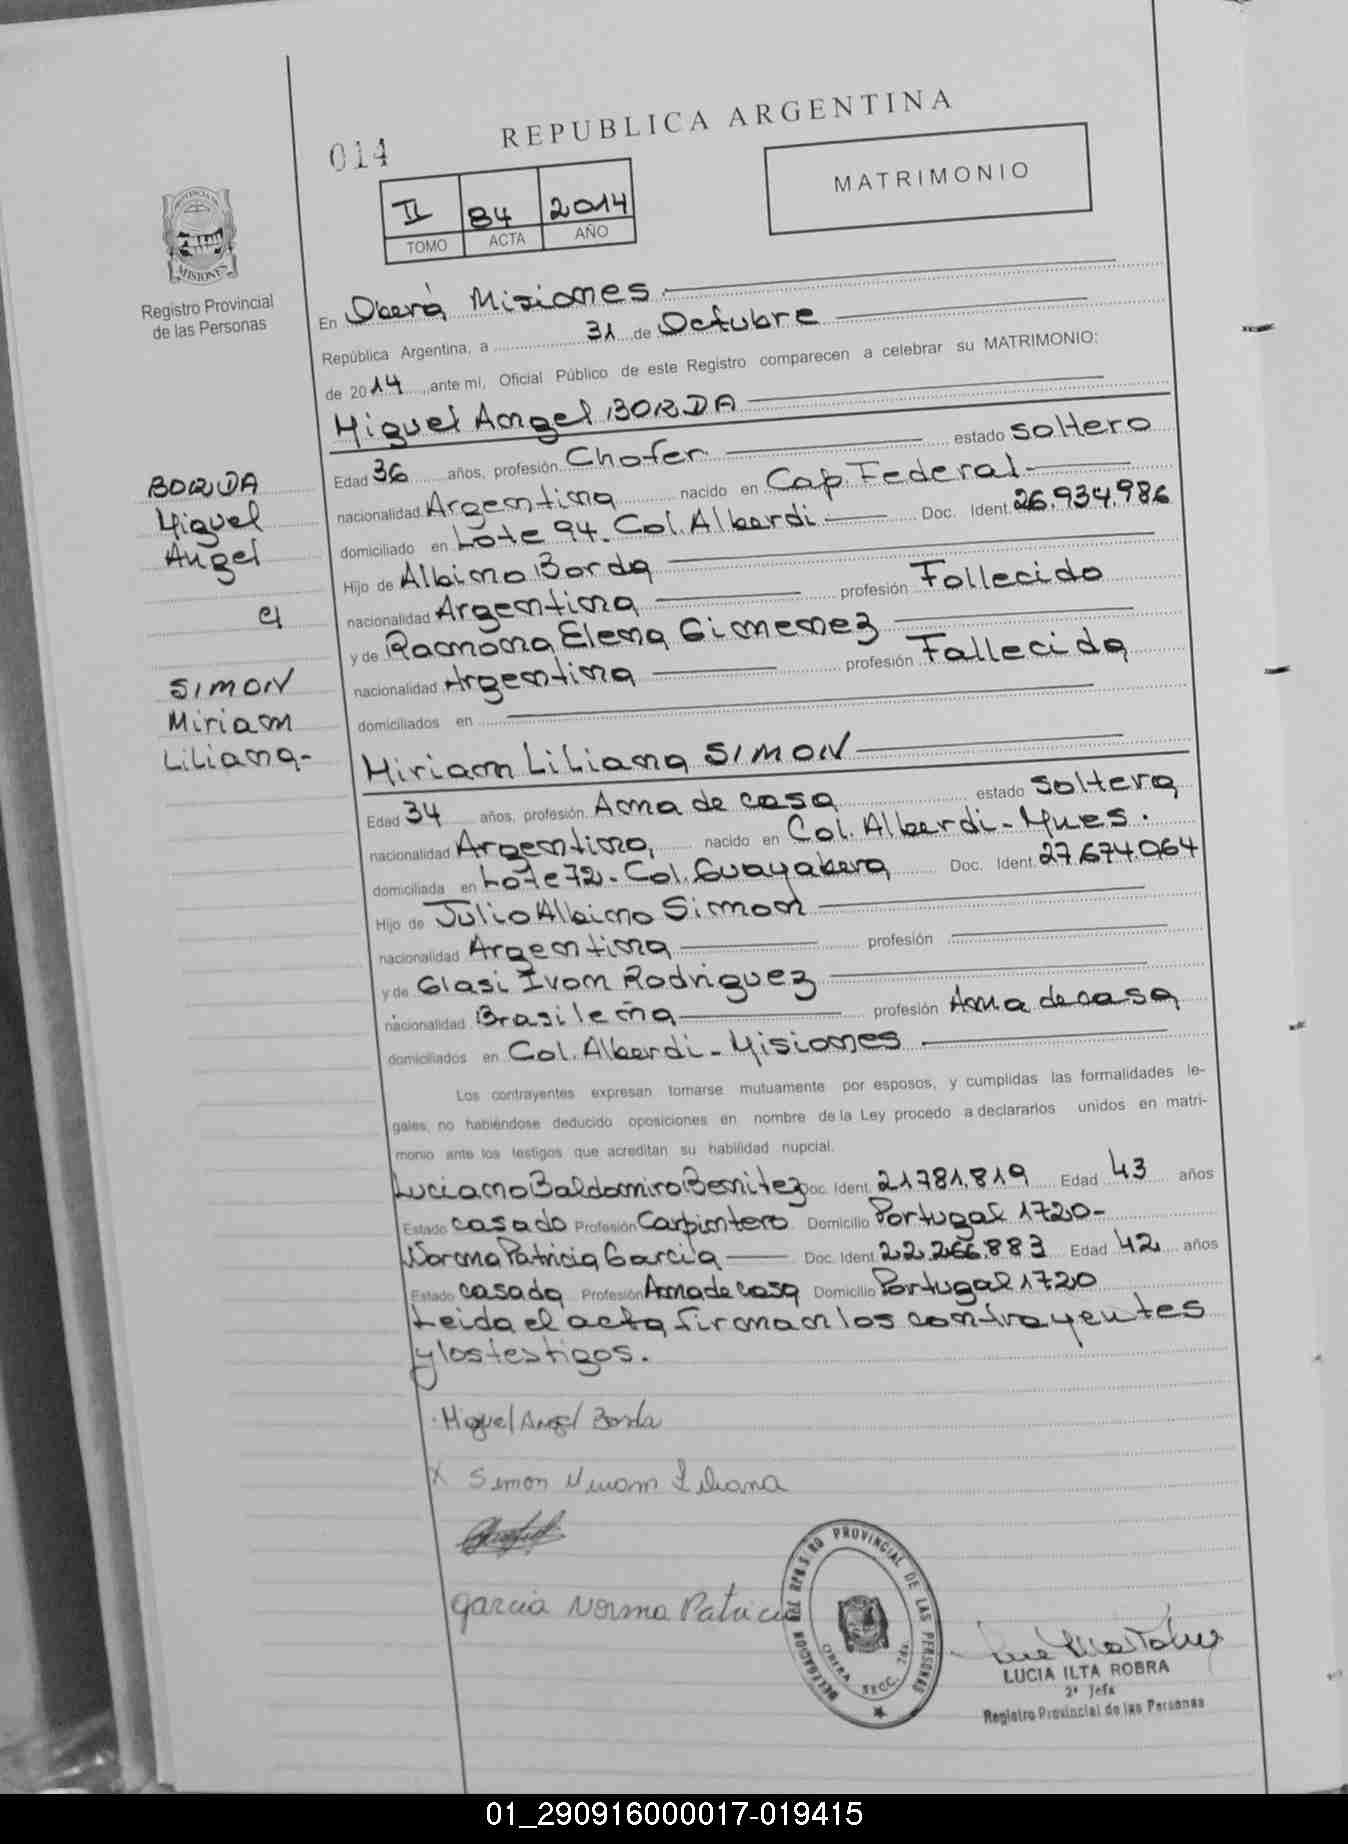 REPUBLICA ARGENTINA
014
MATRIMONIO
II 84 2014
TOMO ACTA AÑO
MISIONES
Registro Provincial
de las Personas
En Oberá Misiones
República Argentina, a 31 de Octubre
de 2014, ante mi, Oficial Público de este Registro comparecen a celebrar su MATRIMONIO:
Miguel Angel BORDA
Edad 36 años, profesión Chofer estado soltero
nacionalidad Argentina nacido en Cap. Federal
domiciliado en Lote 94. Col. Alberdi Doc. Ident. 26.934.986
Hijo de Albino Borda
nacionalidad Argentina profesión Fallecido
y de Ramona Elena Gimenez
nacionalidad Argentina profesión Fallecida
domiciliados en
BORDA
Miguel
Angel
c/
SIMON
Miriam
Liliana-
Miriam Liliana SIMON
Edad 34 años, profesión Ama de casa estado soltera
nacionalidad Argentina, nacido en Col. Alberdi-Mnes.
domiciliada en Lote 72- Col. Guayabera Doc. Ident. 27.674.064
Hijo de Julio Albino Simon
nacionalidad Argentina profesión
y de Glasi Ivon Rodriguez
nacionalidad Brasileña profesión Ama de casa
domiciliados en Col. Alberdi - Misiones
Los contrayentes expresan tomarse mutuamente por esposos, y cumplidas las formalidades le-
gales, no habiéndose deducido oposiciones en nombre de la Ley procedo a declararlos unidos en matri-
monio ante los testigos que acreditan su habilidad nupcial.
Luciano Baldomiro Benitez Doc. Ident. 21.781.819 Edad 43 años
Estado casado Profesión Carpintero Domicilio Portugal 1720-
Norma Patricia Garcia Doc. Ident. 22.266.883 Edad 42 años
Estado casada Profesión Ama de casa Domicilio Portugal 1720
Leida el acta firman los contrayentes
y los testigos.
Miguel Angel Borda
X Simon Miriam Liliana
Garcia Norma Patricia
DELEGACION DEL REGISTRO PROVINCIAL DE LAS PERSONAS
OBERA SECC.
LUCIA ILTA ROBRA
2ª Jefa
Registro Provincial de las Personas
01_290916000017-019415